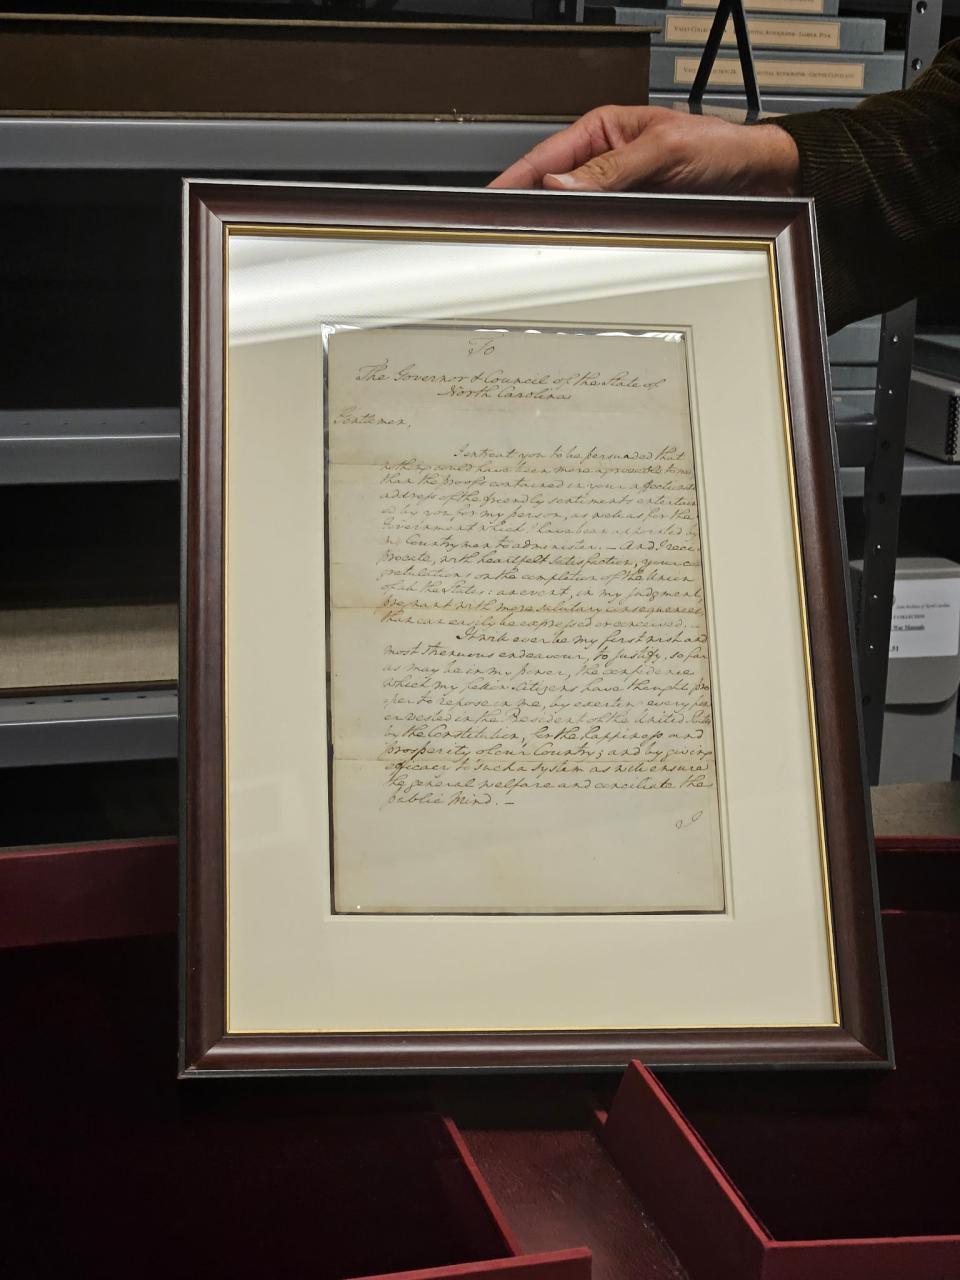 VAULT COLLEC
ENTIAL AUTOGRAPHS - JAMES K. POLK
ENTIAL AUTOGRAPHS - GROVER CLEVELAND
To
The Governor & Council of the State of
North Carolina
Gentlemen,
I entreat you to be persuaded that
nothing could have been more agreeable to me
than the proofs contained in your affectionate
address of the friendly sentiments entertain
ed by you for my person, as well as for the
Government which I have been appointed by
my Countrymen to administer. — And I reci
procate, with heartfelt satisfaction, your con
gratulations on the completion of the Union
of all the States: an event, in my judgment,
pregnant with more salutary consequences
than can easily be expressed or conceived. —
It will ever be my first wish and
most strenuous endeavour, to justify, so far
as may be in my power, the confidence
which my fellow Citizens have thought pro
per to repose in me, by exerting every power
vested in the President of the United States
by the Constitution, for the happiness and
prosperity of our Country; and by giving
efficacy to such a system as will ensure
the general welfare and conciliate the
public Mind. —
I
State Archives of North Carolina
COLLECTION
War Manuals